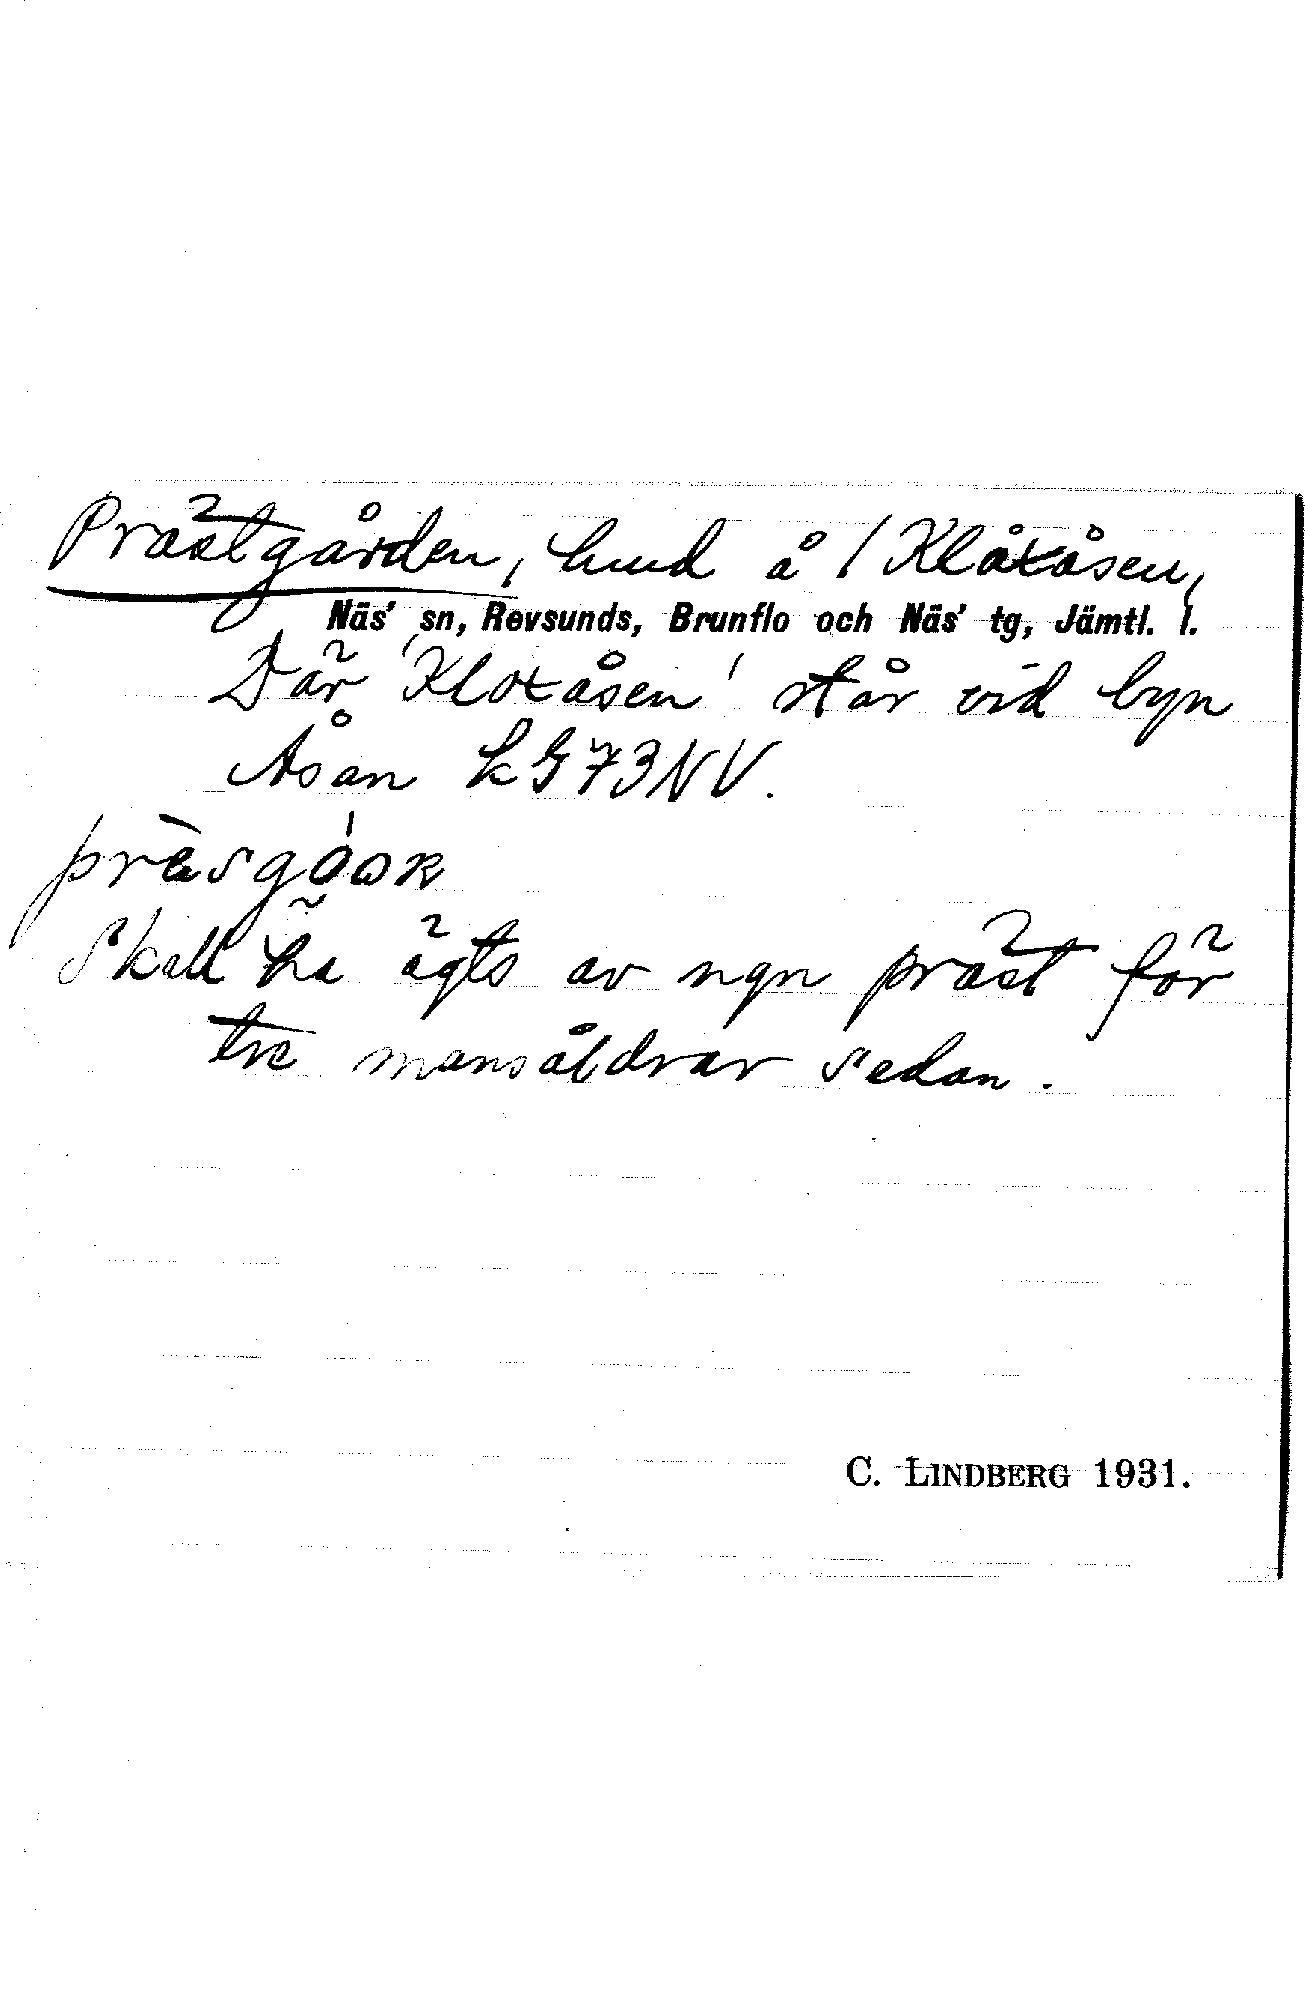 Prästgården, hmd å / Klåxåsen,
Näs' sn, Revsunds, Brunflo och Näs' tg, Jämtl. l.
Där 'Kloxåsen' står vid byn
Åsan kG73NV.
Skall ha ägts av ngn präst för
tre mansåldrar sedan.
C. LINDBERG 1931.